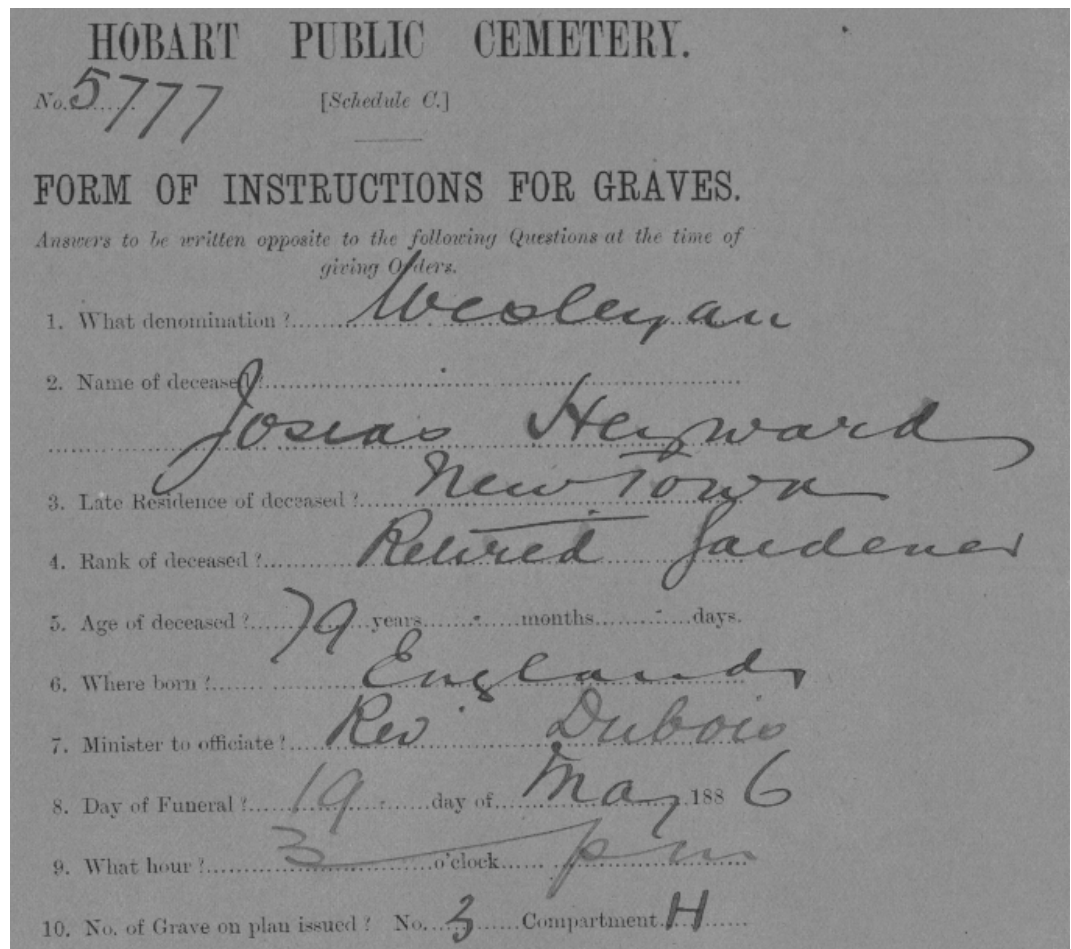 HOBART PUBLIC CEMETERY.
No. 5777 [Schedule C.]
FORM OF INSTRUCTIONS FOR GRAVES.
Answers to be written opposite to the following Questions at the time of
giving Orders.
1. What denomination? Wesleyan
2. Name of deceased?
Josias Heyward
3. Late Residence of deceased? New Town
4. Rank of deceased? Retired Gardener
5. Age of deceased? 79 years - months - days.
6. Where born? England
7. Minister to officiate? Rev Dubois
8. Day of Funeral? 19 day of May 1886
9. What hour? 3 o'clock pm
10. No. of Grave on plan issued? No. 3 Compartment H